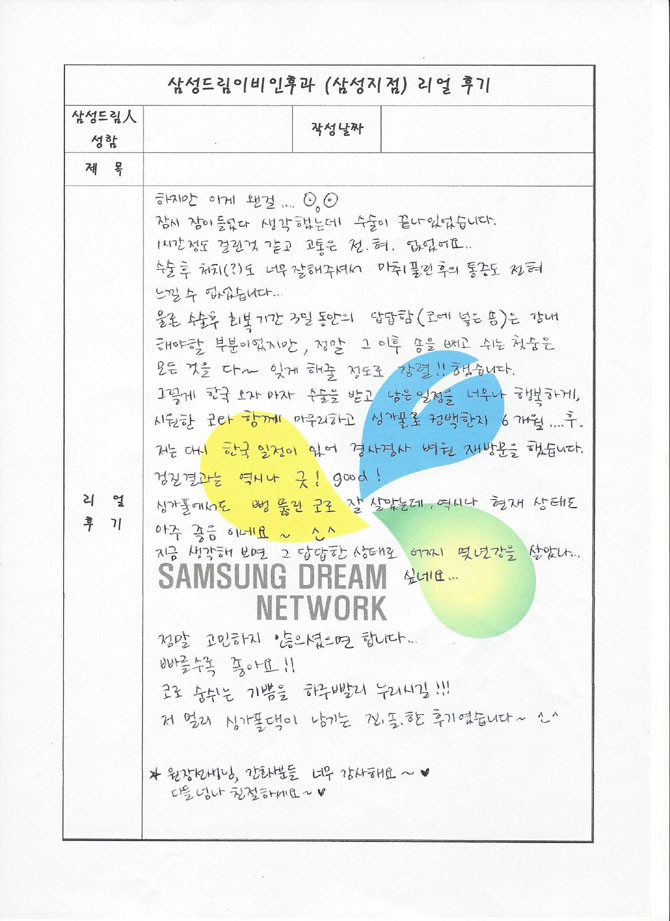 삼성드림이비인후과 (삼성지점) 리얼 후기
삼성드림人
성함
작성날짜
제 목
리 얼
후 기
하지만 이게 왠걸....
잠시 잠이 들었다 생각했는데 수술이 끝나있었습니다.
1시간정도 걸린것 같고 고통은 전.혀. 없었어요..
수술후 처치(?)도 너무 잘해주셔서 마취 풀린 후의 통증도 전혀
느낄 수 없었습니다...
물론 수술후 회복기간 3일 동안의 답답함(코에 넣은 솜)은 감내
해야할 부분이었지만, 정말 그 이후 솜을 빼고 쉬는 첫숨은
모든 것을 다~ 잊게 해줄 정도로 강렬!! 했습니다.
그렇게 한국 오자 마자 수술을 받고 남은 일정을 너무나 행복하게,
시원한 코와 함께 마무리하고 싱가폴로 컴백한지 6개월....후.
저는 다시 한국 일정이 있어 겸사겸사 병원 재방문을 했습니다.
검진결과는 역시나 굿! good!
싱가폴에서도 뻥 뚫린 코로 잘 살았는데, 역시나 현재 상태도
아주 좋음 이네요 ~ ^^
지금 생각해 보면 그 답답한 상태로 어찌 몇년간을 살았나..
싶네요...
SAMSUNG DREAM
NETWORK
정말 고민하지 않으셨으면 합니다...
빠를수록 좋아요!!
코로 숨쉬는 기쁨을 하루빨리 누리시길!!!
저 멀리 싱가폴댁이 남기는 진.솔.한 후기였습니다~ ^^
* 원장선생님, 간호사분들 너무 감사해요~ ♥
다들 넘나 친절하세요~ ♥